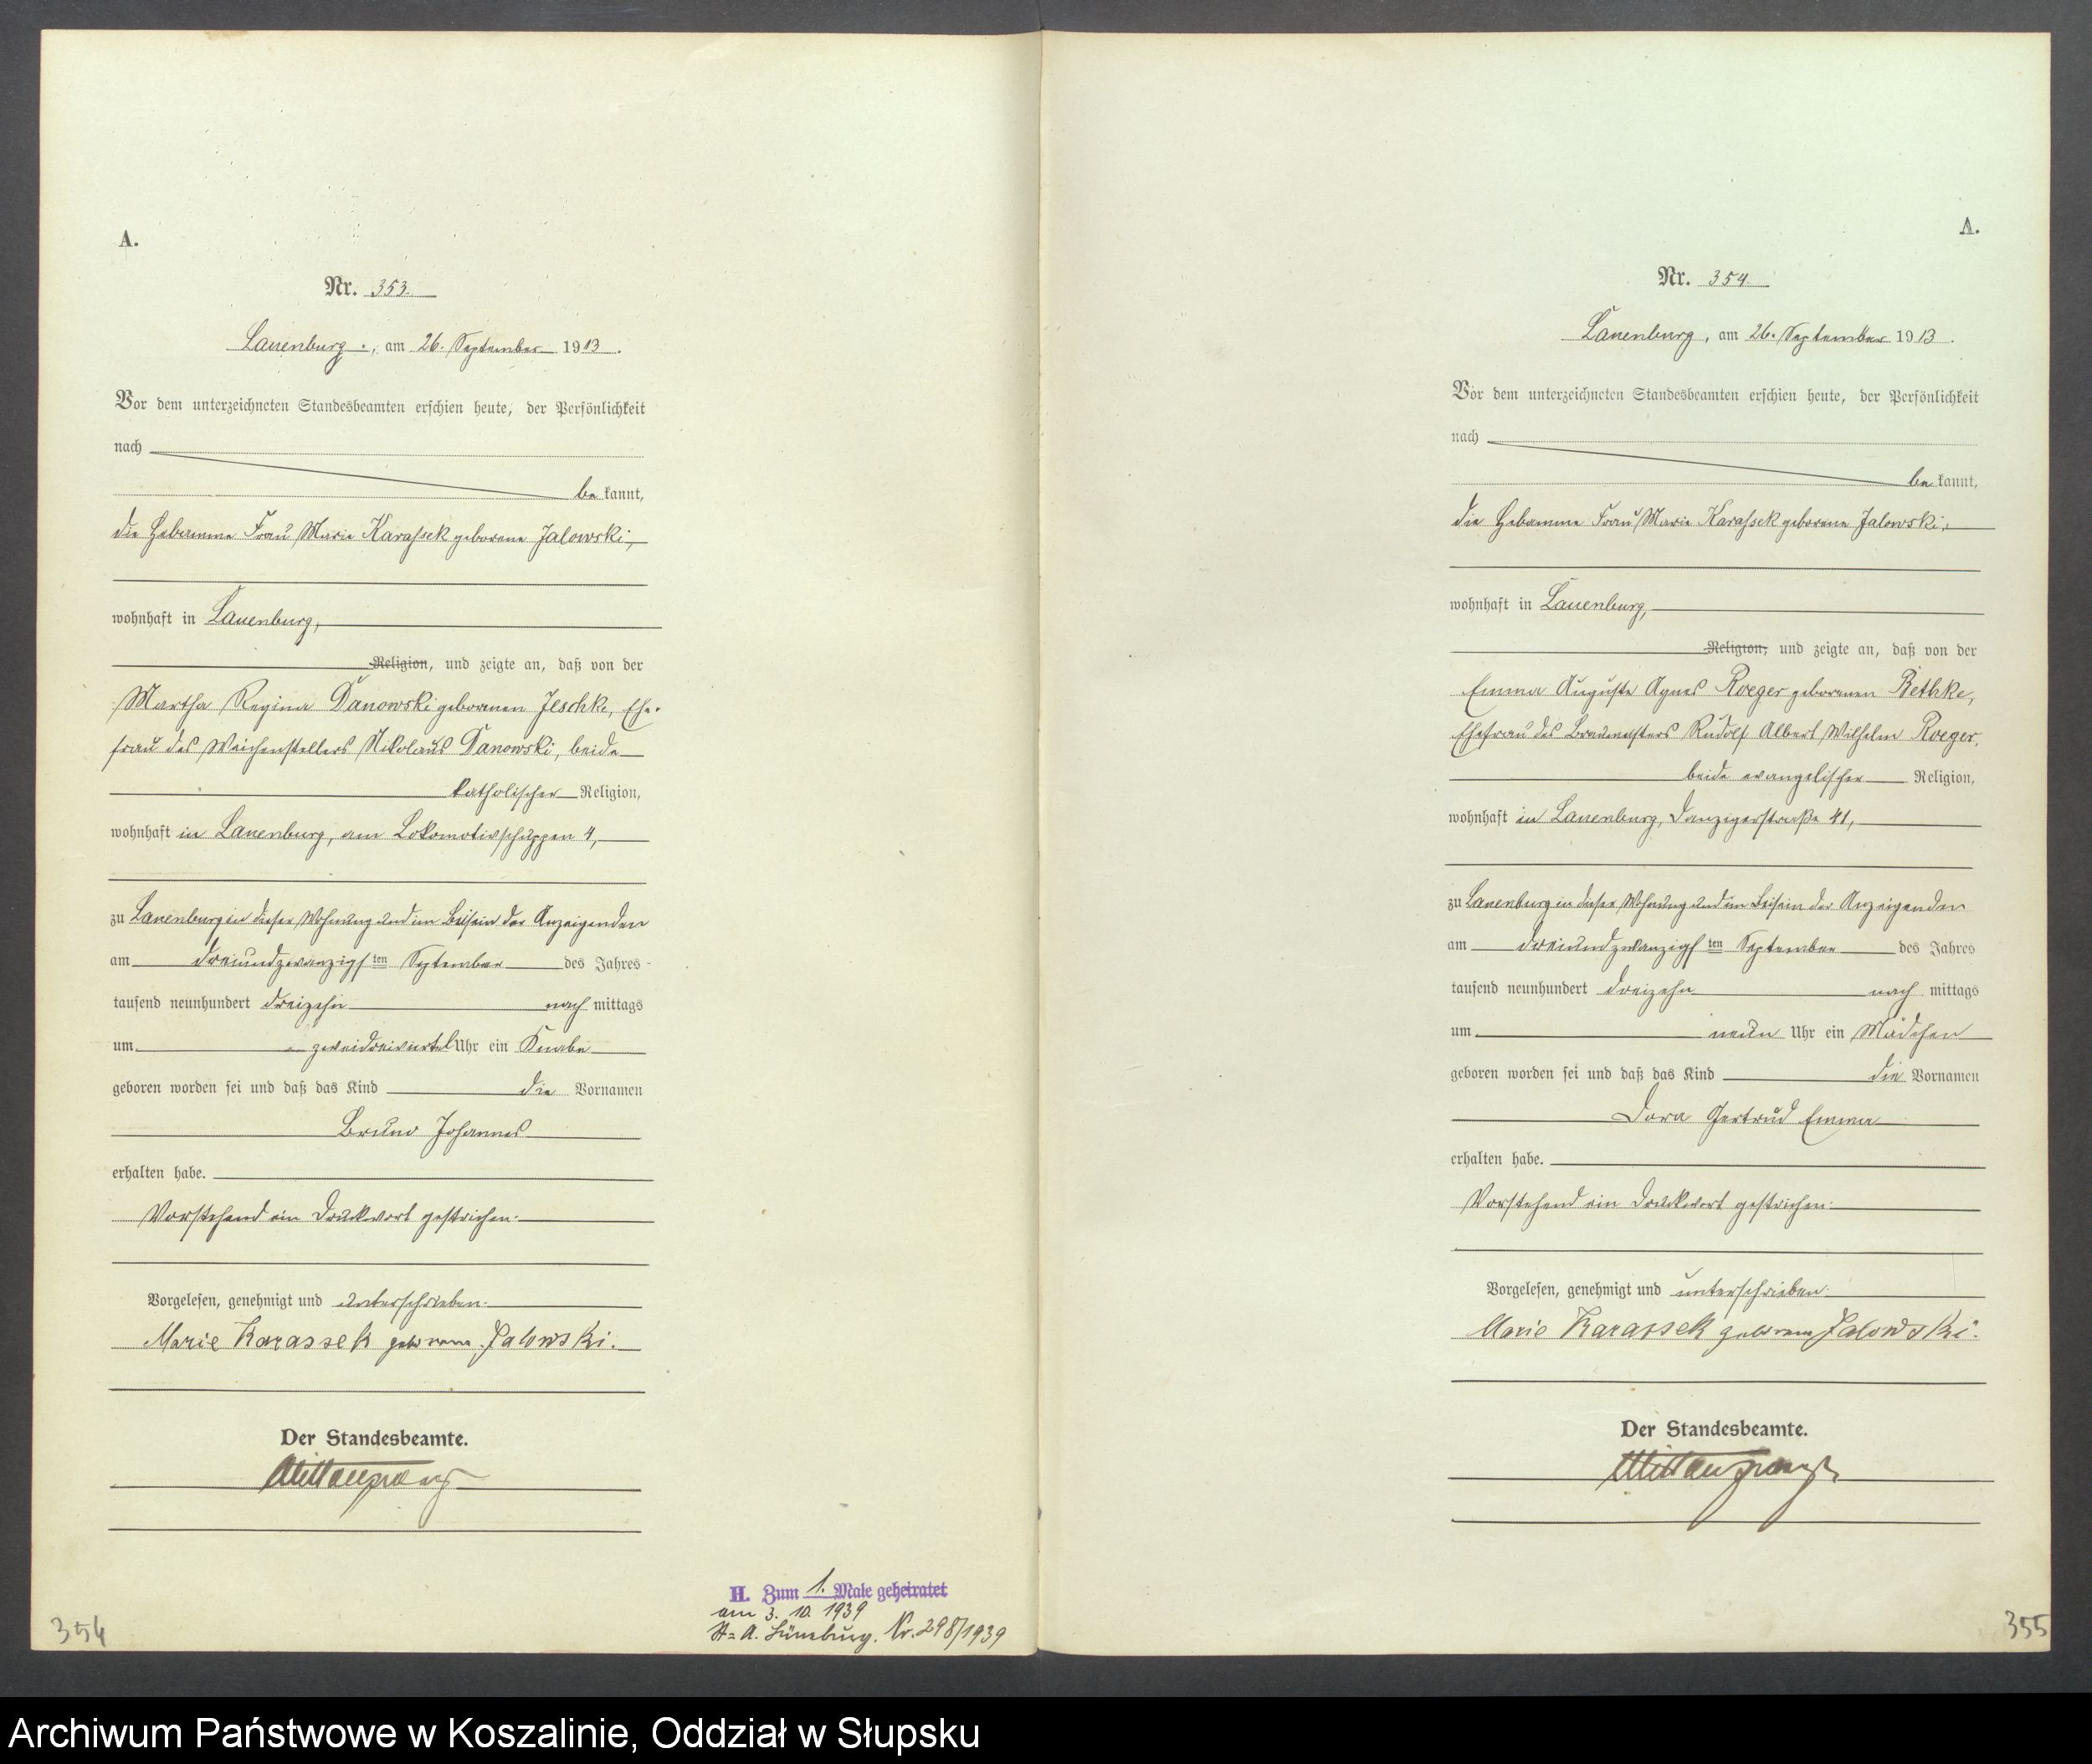 A.
Nr. 353.
Lauenburg., am 26. September 1913.
Vor dem unterzeichneten Standesbeamten erschien heute, der Persönlichkeit
nach
be kannt,
die Hebamme Frau Marie Karassek geborene Jalowski,
wohnhaft in Lauenburg,
Religion, und zeigte an, daß von der
Martha Regina Danowski geborenen Jeschke, Ehe-
frau des Weichenstellers Nikolaus Danowski, beide
katholischer Religion,
wohnhaft in Lauenburg, am Lokomotivschuppen 4,
zu Lauenburg in dieser Wohnung und im Beisein der Anzeigenden
am dreiundzwanzigsten September des Jahres
tausend neunhundert dreizehn nach mittags
um zweidreiviertel Uhr ein Knabe
geboren worden sei und daß das Kind die Vornamen
Bruno Johannes
erhalten habe.
Vorstehend ein Druckwort gestrichen.
Vorgelesen, genehmigt und unterschrieben.
Marie Karassek geborene Jalowski.
Der Standesbeamte.
H. Zum 1. Male geheiratet
am 3. 10. 1939
St=A. Lüneburg. Nr. 298/1939
354
A.
Nr. 354.
Lauenburg, am 26. September 1913.
Vor dem unterzeichneten Standesbeamten erschien heute, der Persönlichkeit
nach
be kannt,
die Hebamme Frau Marie Karassek geborene Jalowski,
wohnhaft in Lauenburg,
Religion, und zeigte an, daß von der
Emma Auguste Agnes Roeger geborenen Bethke,
Ehefrau des Braumeisters Rudolf Albert Wilhelm Roeger,
beide evangelischer Religion,
wohnhaft in Lauenburg, Danzigerstraße 41,
zu Lauenburg in dieser Wohnung und im Beisein der Anzeigenden
am dreiundzwanzigsten September des Jahres
tausend neunhundert dreizehn nach mittags
um neun Uhr ein Mädchen
geboren worden sei und daß das Kind die Vornamen
Dora Gertrud Emma
erhalten habe.
Vorstehend ein Druckwort gestrichen.
Vorgelesen, genehmigt und unterschrieben.
Marie Karassek geborene Jalowski.
Der Standesbeamte.
355
Archiwum Państwowe w Koszalinie, Oddział w Słupsku